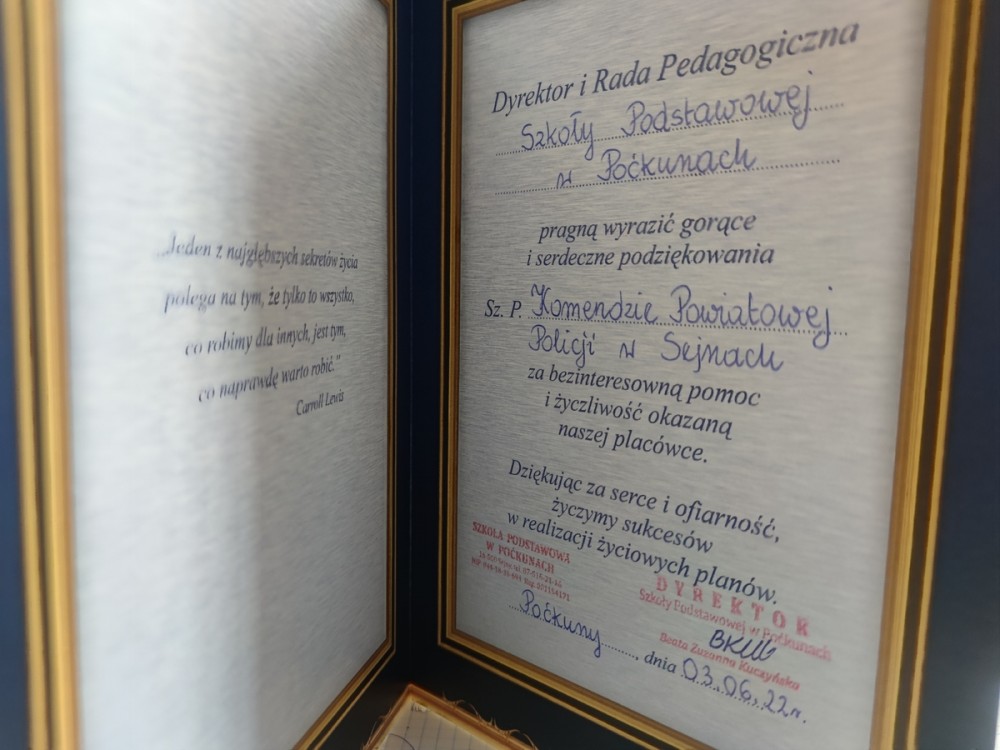 „Jeden z najgłębszych sekretów życia
polega na tym, że tylko to wszystko,
co robimy dla innych, jest tym,
co naprawdę warto robić."
Carroll Lewis
Dyrektor i Rada Pedagogiczna
Szkoły Podstawowej
w Poćkunach
pragną wyrazić gorące
i serdeczne podziękowania
Sz. P. Komendzie Powiatowej
Policji w Sejnach
za bezinteresowną pomoc
i życzliwość okazaną
naszej placówce.
Dziękując za serce i ofiarność,
życzymy sukcesów
w realizacji życiowych planów.
SZKOŁA PODSTAWOWA
W POĆKUNACH
DYREKTOR
Szkoły Podstawowej w Poćkunach
Beata Zuzanna Kuczyńska
Poćkuny, dnia 03.06.22r.